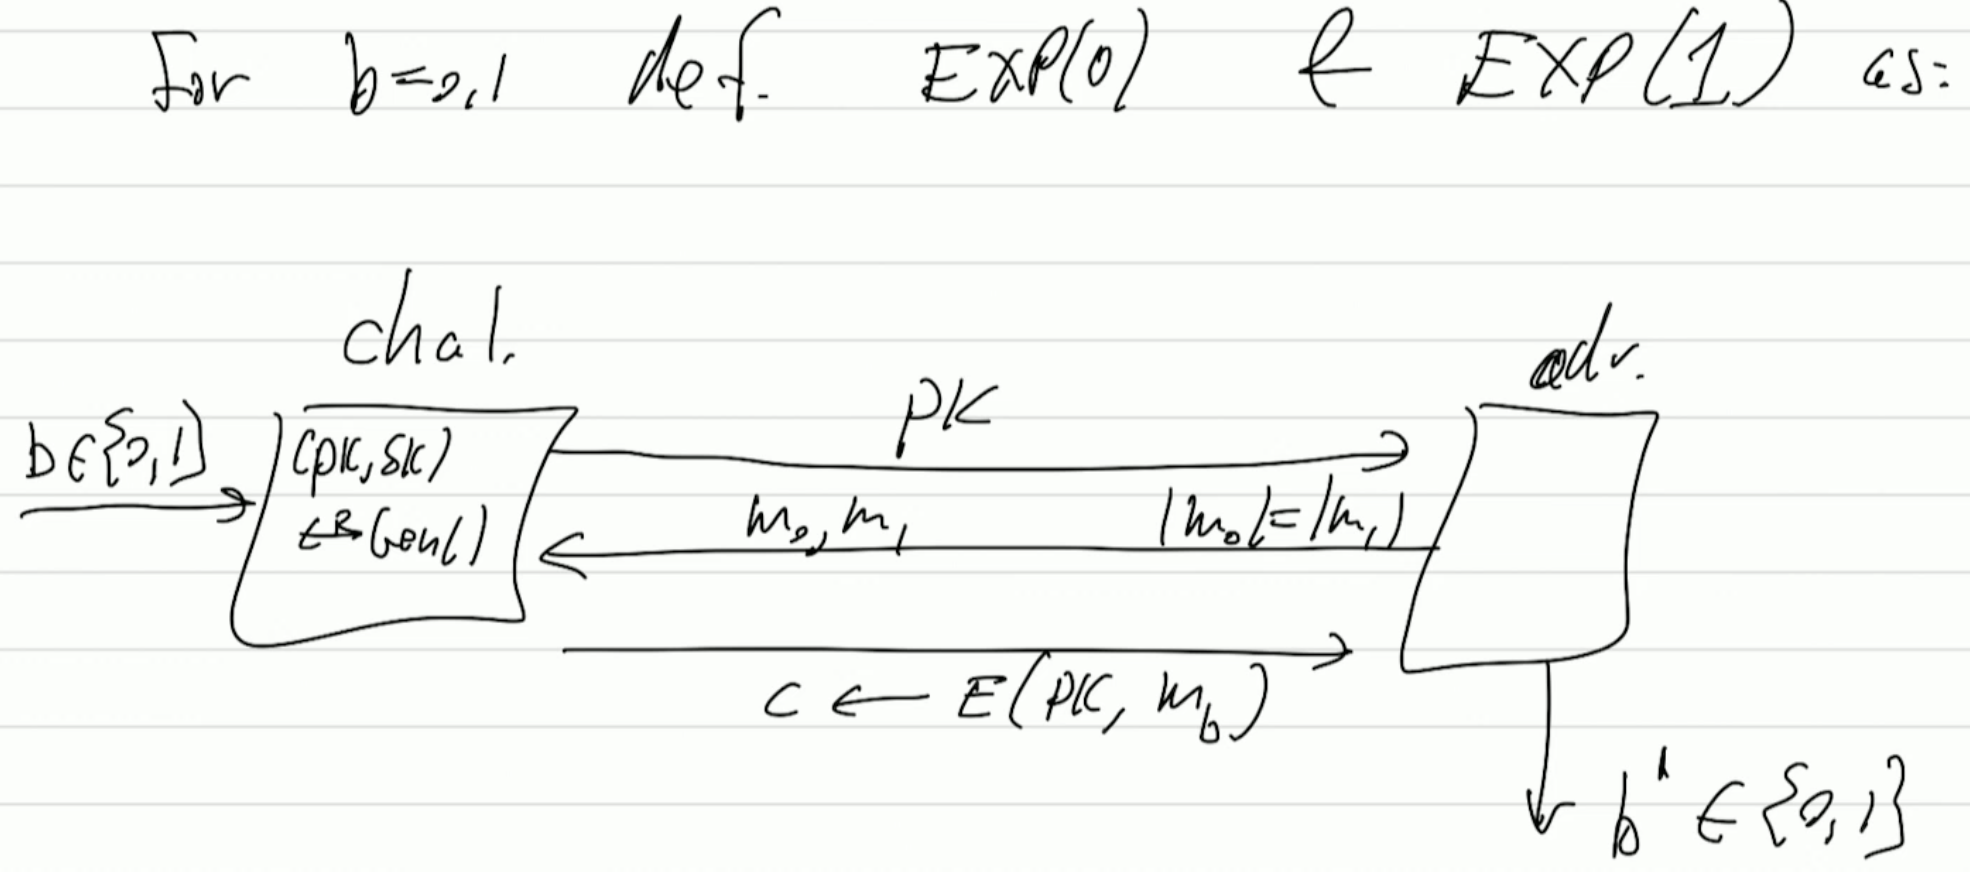 For b=0,1 def. EXP(0) & EXP(1) as:
chal.
adr.
b∈{0,1}
(pk,sk)
←R Gen()
PK
m₀, m₁
|m₀|=|m₁|
c ← E(PK, m_b)
b' ∈ {0,1}